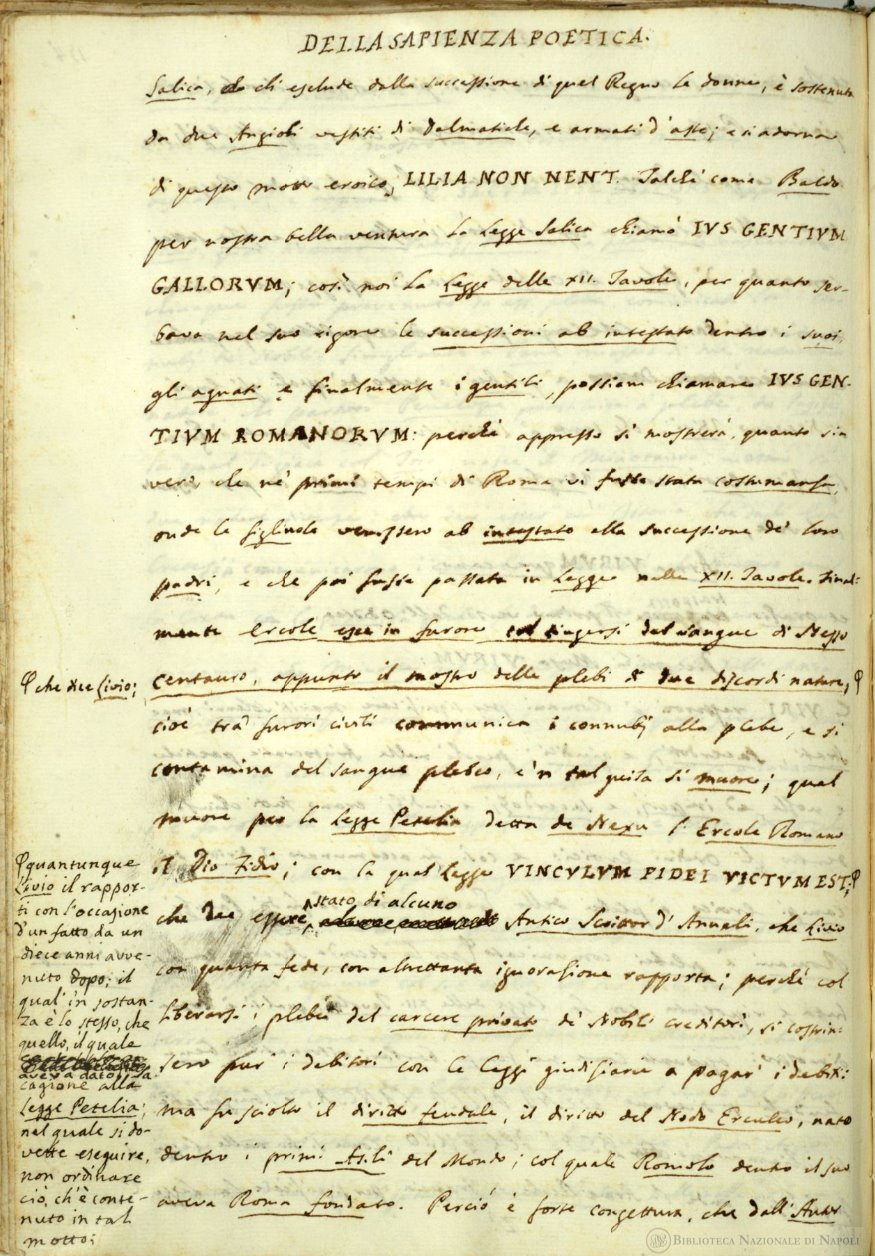 DELLA SAPIENZA POETICA.
Salica, che esclude dalla successione di quel Regno le donne, è sostenuta
da due Angioli vestiti di Dalmatiche, e armati d'aste; e si adorna
di questo motto eroico, LILIA NON NENT. Talché come Baldo
per nostra bella ventura la Legge Salica chiamò IVS GENTIVM
GALLORVM; così noi la Legge delle XII. Tavole, per quanto ser-
bava nel suo rigore le successioni ab intestato dentro i suoi,
gli agnati e finalmente i gentili, possiam chiamare IVS GEN-
TIVM ROMANORVM: perché appresso si mostrerà, quanto sia
vero, che ne' primi tempi di Roma vi fusse stata costumanza,
onde le figliuole venissero ab intestato alla successione de' loro
padri, e che poi fusse passata in Legge nelle XII. Tavole. Final-
mente Ercole esce in furore col tingersi del sangue di Nesso
centauro, appunto il mostro delle plebi di due discordi nature,
φ che dice Livio;
cioè tra' furori civili communica i connubj alla plebe, e si
contamina del sangue plebeo, e 'n tal guisa si muore; qual
muore per la Legge Petelia detta de Nexu l'Ercole Romano
il Dio Fidio; con la qual Legge VINCVLVM FIDEI VICTVM EST; φ
che dee essere stato di alcuno Antico Scrittor d'Annali, che Livio
con quanta fede, con altrettanta ignorazione rapporta; perché col
liberarsi i plebei dal carcere privato de' Nobili creditori, si costrin-
sero pur' i debitori con le Leggi giudiziarie a pagar' i debiti:
ma fu sciolto il diritto feudale, il diritto del Nodo Erculeo, nato
dentro i primi Asili del Mondo; col quale Romolo dentro il suo
aveva Roma fondato. Perciò è forte congettura, che dall'Autor
φ quantunque
Livio il rappor-
ti con l'occasione
d'un fatto da un
diece anni avve-
nuto dopo; il
qual' in sostan-
za è lo stesso, che
quello, il quale
aveva dato la
cagione alla
Legge Petelia;
nel quale si do-
vette eseguire,
non ordinare
ciò, ch'è conte-
nuto in tal
motto;
BIBLIOTECA NAZIONALE DI NAPOLI